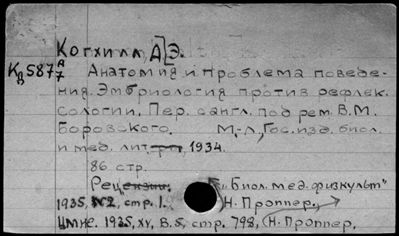 Когхилл, Д] Э.
Кд587 А/7 Анатомия и проблема поведе-
ния. Эмбриология против рефлек-
сологии. Пер. с англ. под рем. В.М.
Боровского. М.-Л, Гос. изд. биол.
и мед. лит. 1934.
86 стр.
Рецензии: "Биол. мед. физкульт"
1935, №2, стр. 1. (Н. Проппер.
Цмне. 1935, XV, В. 5, стр. 798, (Н. Проппер,